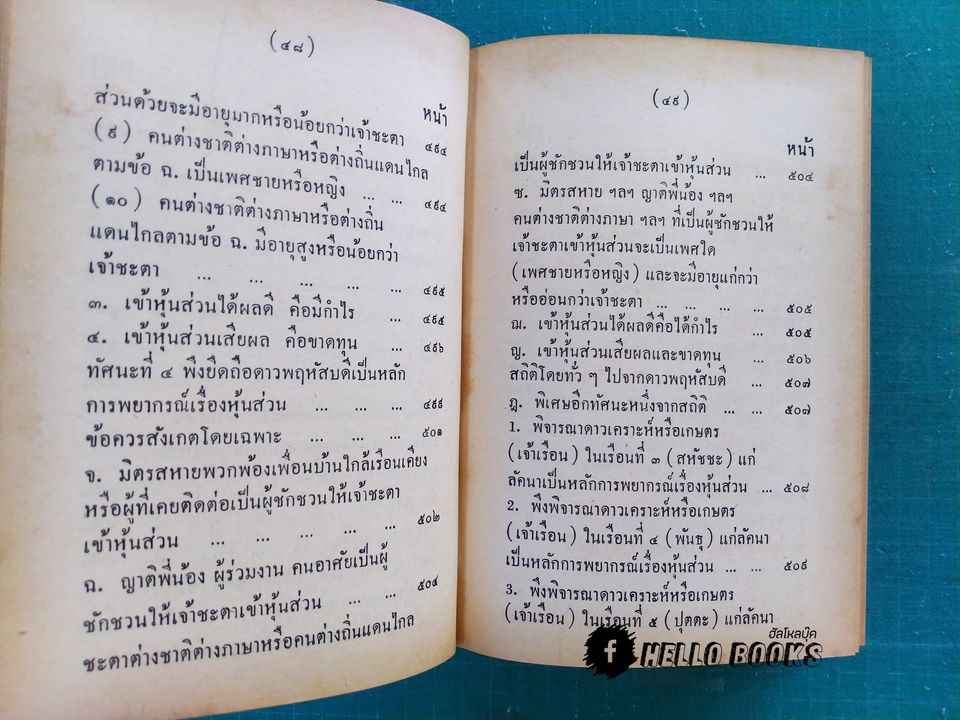 (๔๘)
หน้า
ส่วนด้วยจะมีอายุมากหรือน้อยกว่าเจ้าชะตา ๔๙๔
(๙) คนต่างชาติต่างภาษาหรือต่างถิ่นแดนไกล
ตามข้อ ฉ. เป็นเพศชายหรือหญิง ... ... ๔๙๔
(๑๐) คนต่างชาติต่างภาษาหรือต่างถิ่น
แดนไกลตามข้อ ฉ. มีอายุสูงหรือน้อยกว่า
เจ้าชะตา ... ... ... ... ... ๔๙๕
๓. เข้าหุ้นส่วนได้ผลดี คือมีกำไร ... ๔๙๕
๔. เข้าหุ้นส่วนเสียผล คือขาดทุน ... ๔๙๖
ทัศนะที่ ๔ พึงยึดถือดาวพฤหัสบดีเป็นหลัก
การพยากรณ์เรื่องหุ้นส่วน ... ... ... ๔๙๙
ข้อควรสังเกตโดยเฉพาะ ... ... ... ๕๐๑
จ. มิตรสหายพวกพ้องเพื่อนบ้านใกล้เรือนเคียง
หรือผู้ที่เคยติดต่อเป็นผู้ชักชวนให้เจ้าชะตา
เข้าหุ้นส่วน ... ... ... ... ... ๕๐๒
ฉ. ญาติพี่น้อง ผู้ร่วมงาน คนอาศัยเป็นผู้
ชักชวนให้เจ้าชะตาเข้าหุ้นส่วน ... ... ๕๐๔
ชะตาต่างชาติต่างภาษาหรือคนต่างถิ่นแดนไกล
(๔๙)
หน้า
เป็นผู้ชักชวนให้เจ้าชะตาเข้าหุ้นส่วน ... ๕๐๔
ซ. มิตรสหาย ฯลฯ ญาติพี่น้อง ฯลฯ
คนต่างชาติต่างภาษา ฯลฯ ที่เป็นผู้ชักชวนให้
เจ้าชะตาเข้าหุ้นส่วนจะเป็นเพศใด
(เพศชายหรือหญิง) และจะมีอายุแก่กว่า
หรืออ่อนกว่าเจ้าชะตา ... ... ... ... ๕๐๕
ฌ. เข้าหุ้นส่วนได้ผลดีคือได้กำไร ... ๕๐๕
ญ. เข้าหุ้นส่วนเสียผลและขาดทุน ... ๕๐๖
สถิติโดยทั่ว ๆ ไปจากดาวพฤหัสบดี ... ๕๐๗
ฎ. พิเศษอีกทัศนะหนึ่งจากสถิติ ... ... ๕๐๗
1. พิจารณาดาวเคราะห์หรือเกษตร
(เจ้าเรือน) ในเรือนที่ ๓ (สหัชชะ) แก่
ลัคนาเป็นหลักการพยากรณ์เรื่องหุ้นส่วน ... ๕๐๘
2. พึงพิจารณาดาวเคราะห์หรือเกษตร
(เจ้าเรือน) ในเรือนที่ ๔ (พันธุ) แก่ลัคนา
เป็นหลักการพยากรณ์เรื่องหุ้นส่วน ... ... ๕๐๙
3. พึงพิจารณาดาวเคราะห์หรือเกษตร
(เจ้าเรือน) ในเรือนที่ ๕ (ปุตตะ) แก่ลัคนา
ฮัลโหลบุ๊ค
f HELLO BOOKS